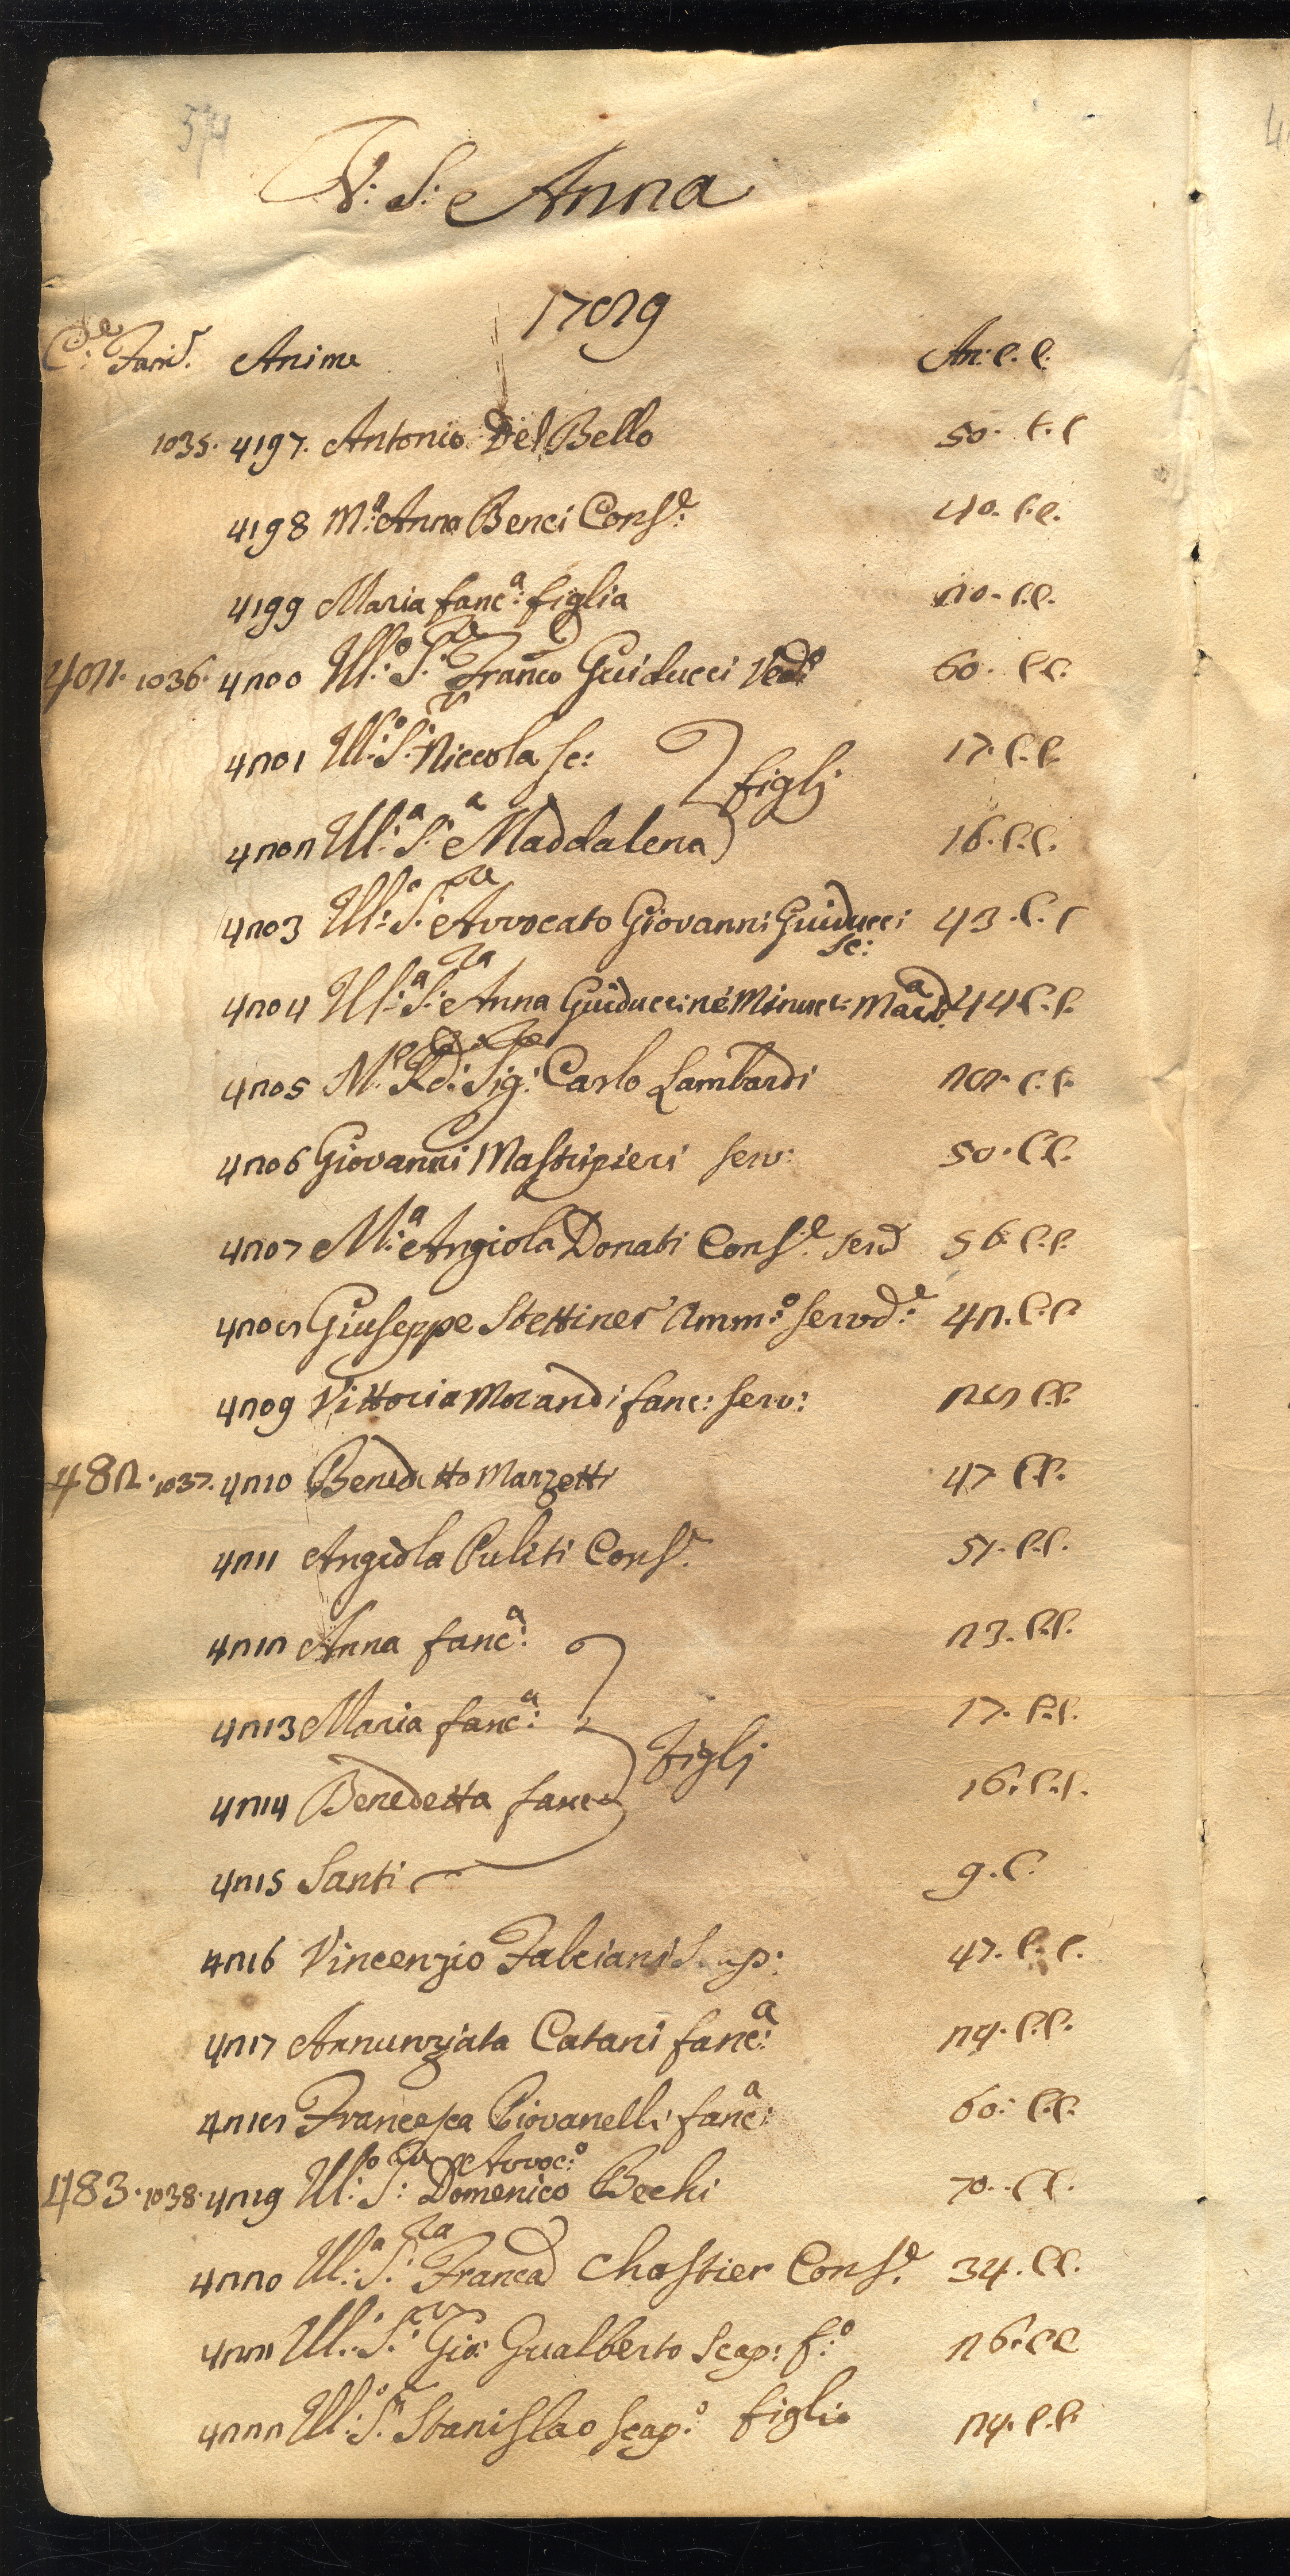 574
V: S: Anna
1789
C.e Fam.e Anime An: C. C.
1035. 4197. Antonio Del Bello 50. C. C
4198 M.a Anna Benci Cons.e 40. C.C.
4199 Maria fanc.a figlia 20. C.C.
481. 1036. 4200 Ill.o S.re Franco Guiducci Ved.o 60. C.C.
4201 Ill.o S.r Niccola sc: 17. C.C.
figlj
4202 Ill.a S.a Maddalena 16. C.C.
4203 Ill.o S.re Avvocato Giovanni Guiducci 43. C. C
sc:
4204 Ill.a S.ra Anna Guiducci ne Minucci Mad.a 44 C.C.
4205 M. Rd: Sig: Carlo Lambardi 28. C.C.
4206 Giovanni Mastripieri serv: 50. C C.
4207 M.a Angiola Donati Cons.e serv 56. C.C.
4208 Giuseppe Stettiner Amm.o servd.e 42. C.C
4209 Vittoria Morandi fanc: serv: 28 C.C.
482. 1037. 4210 Benedetto Marzetti 47 C.C.
4211 Angiola Puliti Cons.e 51. C.C.
4212 Anna fanc.a 23. C.C.
4213 Maria fanc.a 17. C.C.
figlj
4214 Benedetta fanc 16. C.C.
4215 Santi 9. C.
4216 Vincenzio Falciani 47. C. C.
4217 Annunziata Catani fanc.a 24. C.C.
4218 Francesca Piovanelli fanc.a 60. C.C.
Avvoc.o
483. 1038. 4219 Ill.o S.re Domenico Bechi 70. C C.
4220 Ill.a S.ra Franca Chastier Cons.e 34. C C.
4221 Ill.o S.r Gio: Gualberto Scap: f.o 26. C C
4222 Ill.o S.r Stanislao scap.o figlio 24. C.C